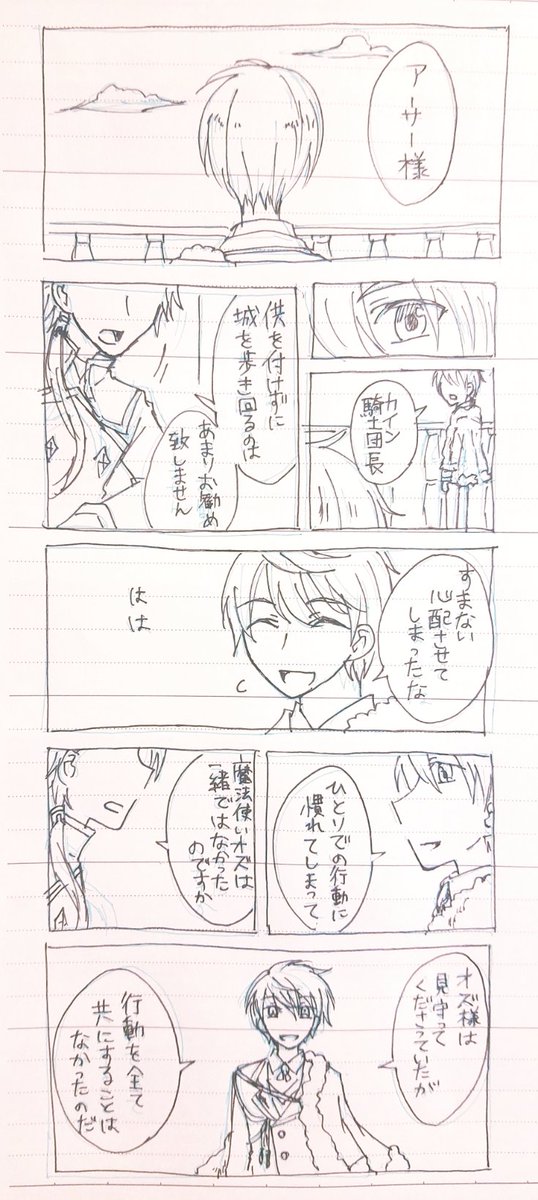 アーサー様
カイン
騎士団長
供を付けずに
城を歩き回るのは
あまりお勧め
致しません
すまない
心配させて
しまったな
はは
ひとりでの行動に
慣れてしまって
魔法使いオズは
一緒ではなかった
のですか
オズ様は
見守って
くださっていたが
行動を全て
共にすることは
なかったのだ